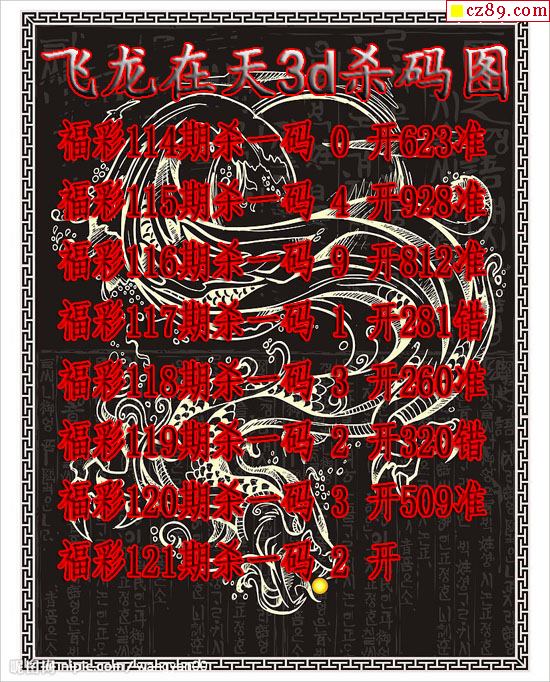 cz89.com
飞龙在天3d杀码图
福彩114期杀一码 0 开623准
福彩115期杀一码 4 开928准
福彩116期杀一码 9 开812准
福彩117期杀一码 1 开281错
福彩118期杀一码 3 开260准
福彩119期杀一码 2 开320错
福彩120期杀一码 3 开509准
福彩121期杀一码 2 开